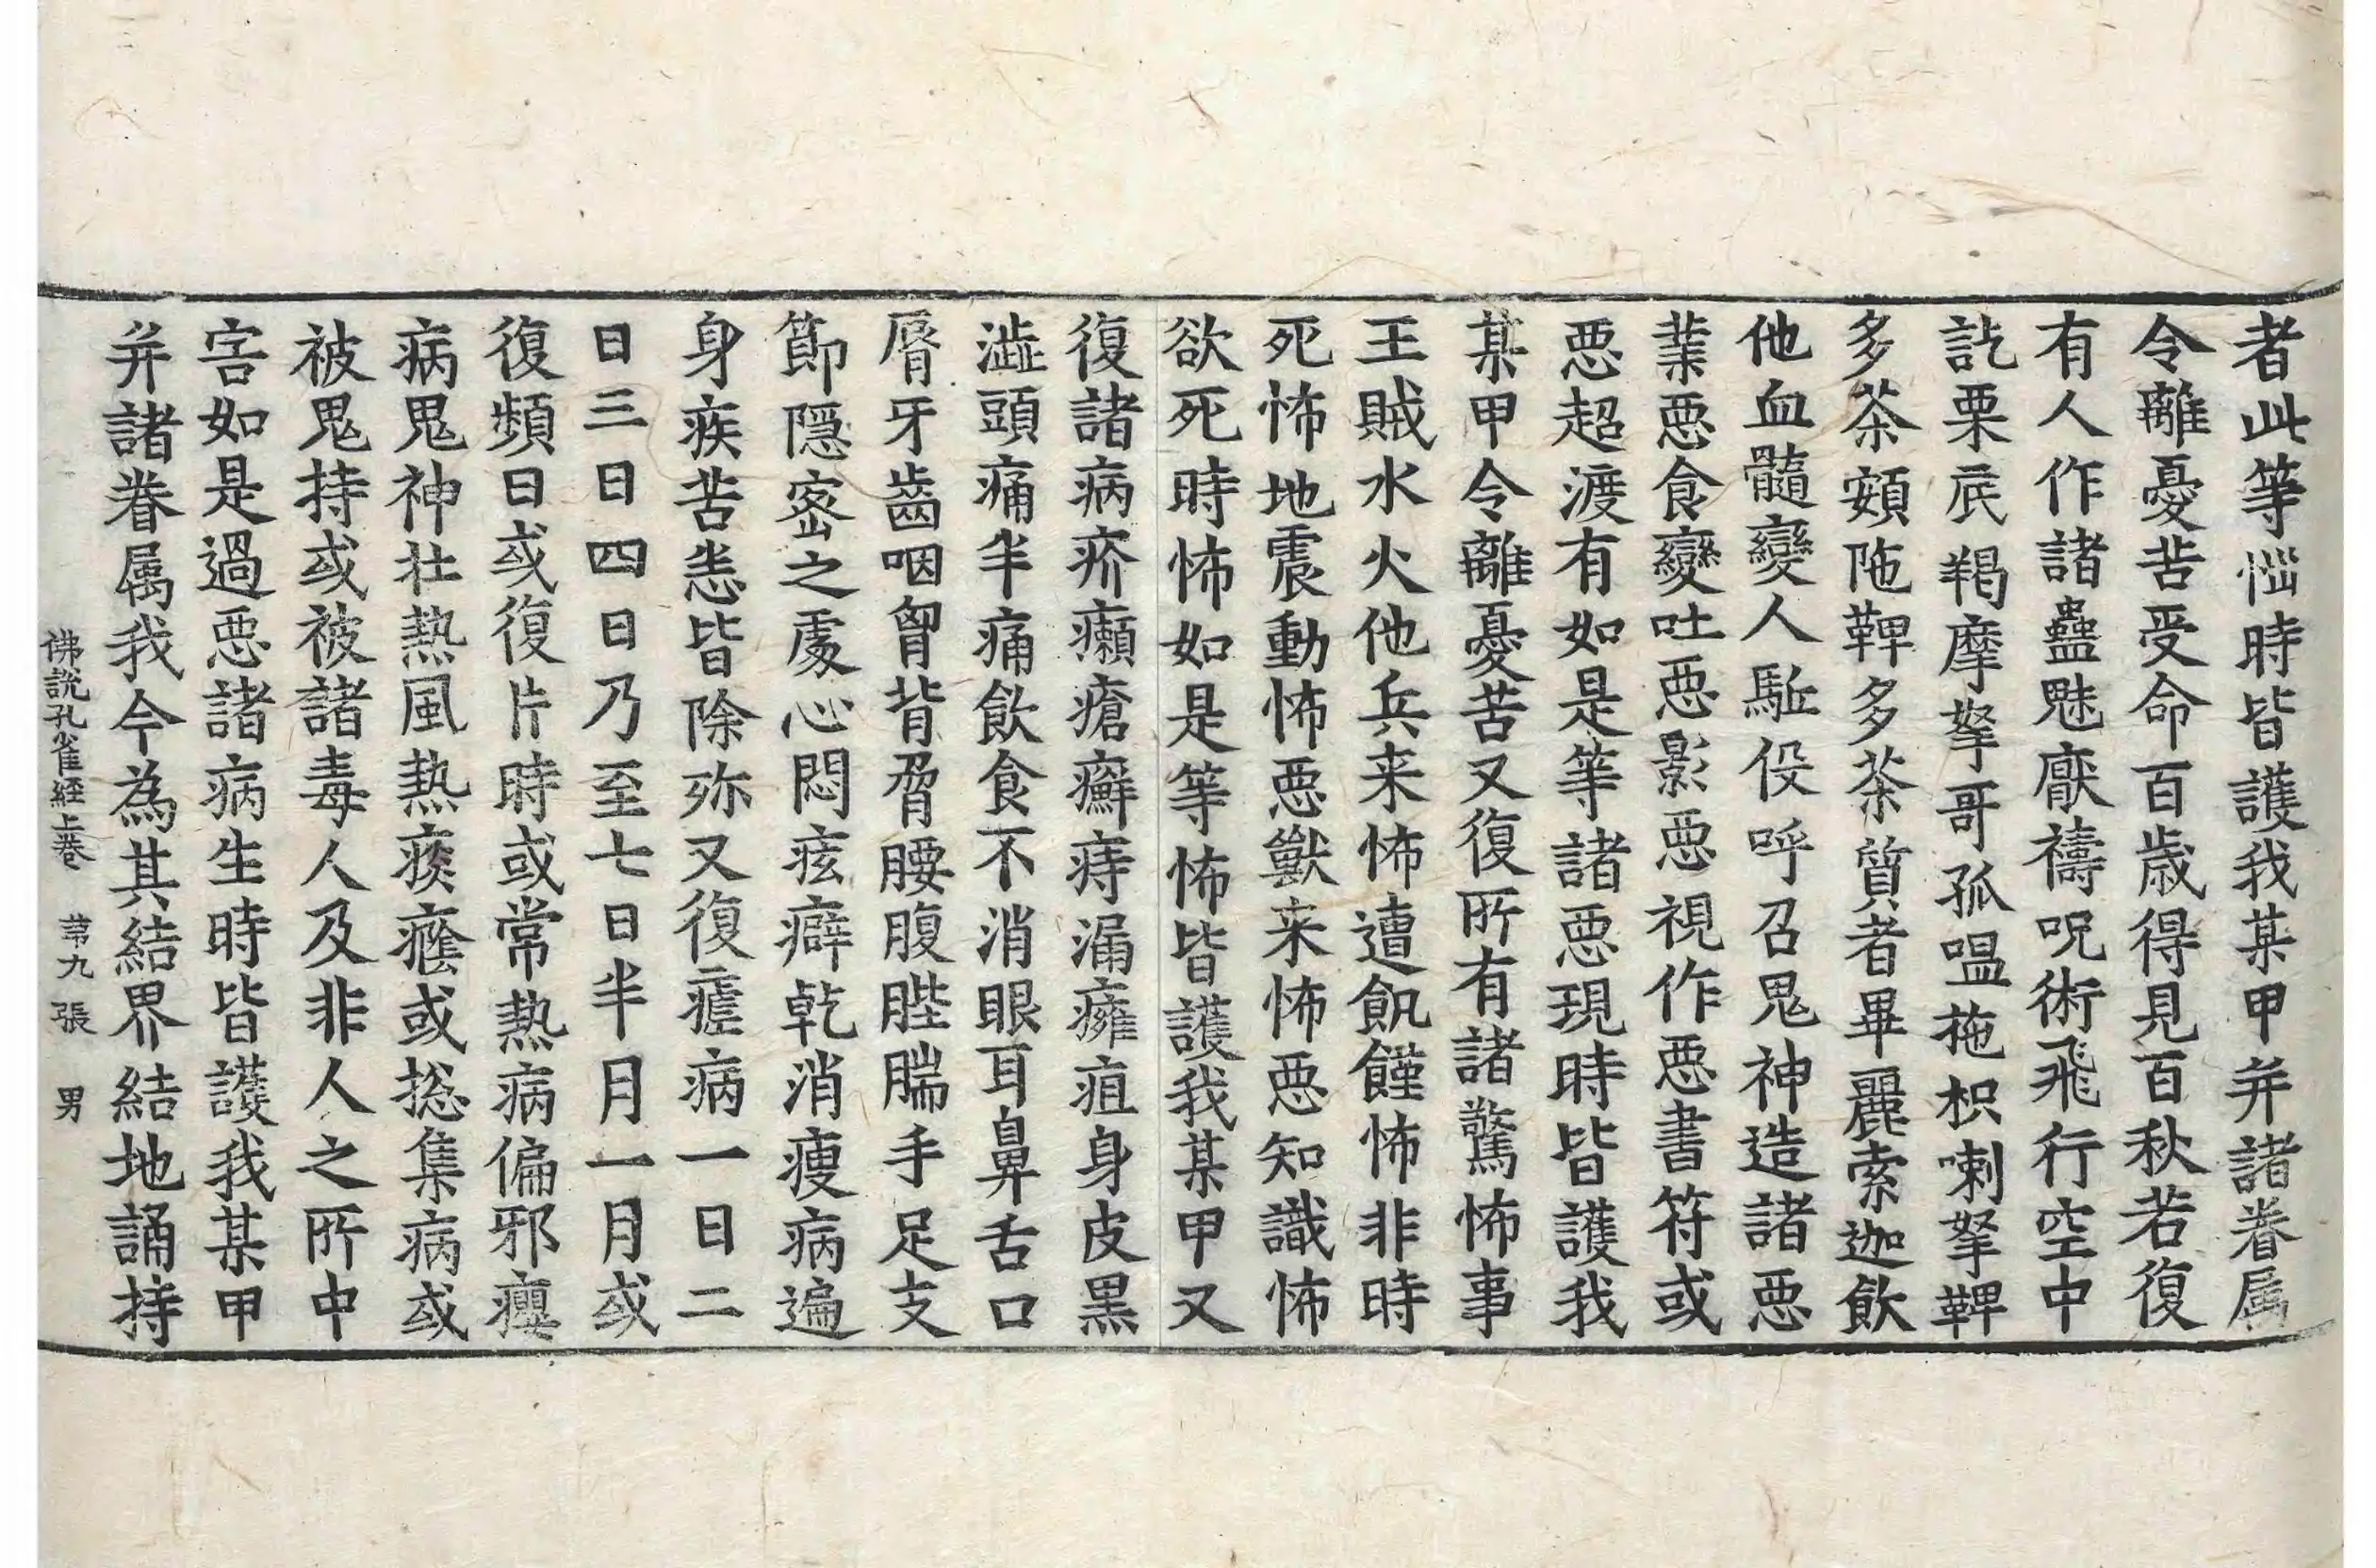 者此等惱時皆護我某甲并諸眷属
令離憂苦受命百歲得見百秋若復
有人作諸蠱魅厭禱呪術飛行空中
訖栗底羯摩拏哥孤嗢拖枳喇拏鞞
多茶頞陁鞞多茶質者畢麗索迦飲
他血髓變人駈役呼召鬼神造諸惡
業惡食變吐惡影惡視作惡書符或
惡超渡有如是等諸惡現時皆護我
某甲令離憂苦又復所有諸驚怖事
王賊水火他兵来怖遭飢饉怖非時
死怖地震動怖惡獸来怖惡知識怖
欲死時怖如是等怖皆護我某甲又
復諸病疥癩瘡癬痔漏癰疽身皮黑
澁頭痛半痛飲食不消眼耳鼻舌口
脣牙齒咽胷背脅腰腹䏶腨手足支
節隱密之處心悶痃癖乾消瘦病遍
身疾苦恙皆除殄又復瘧病一日二
日三日四日乃至七日半月一月或
復頻日或復片時或常熱病偏邪癭
病鬼神壮熱風熱痰癊或揔集病或
被鬼持或被諸毒人及非人之所中
害如是過惡諸病生時皆護我某甲
并諸眷属我今為其結界結地誦持
佛說孔雀經上卷 苐九張 男